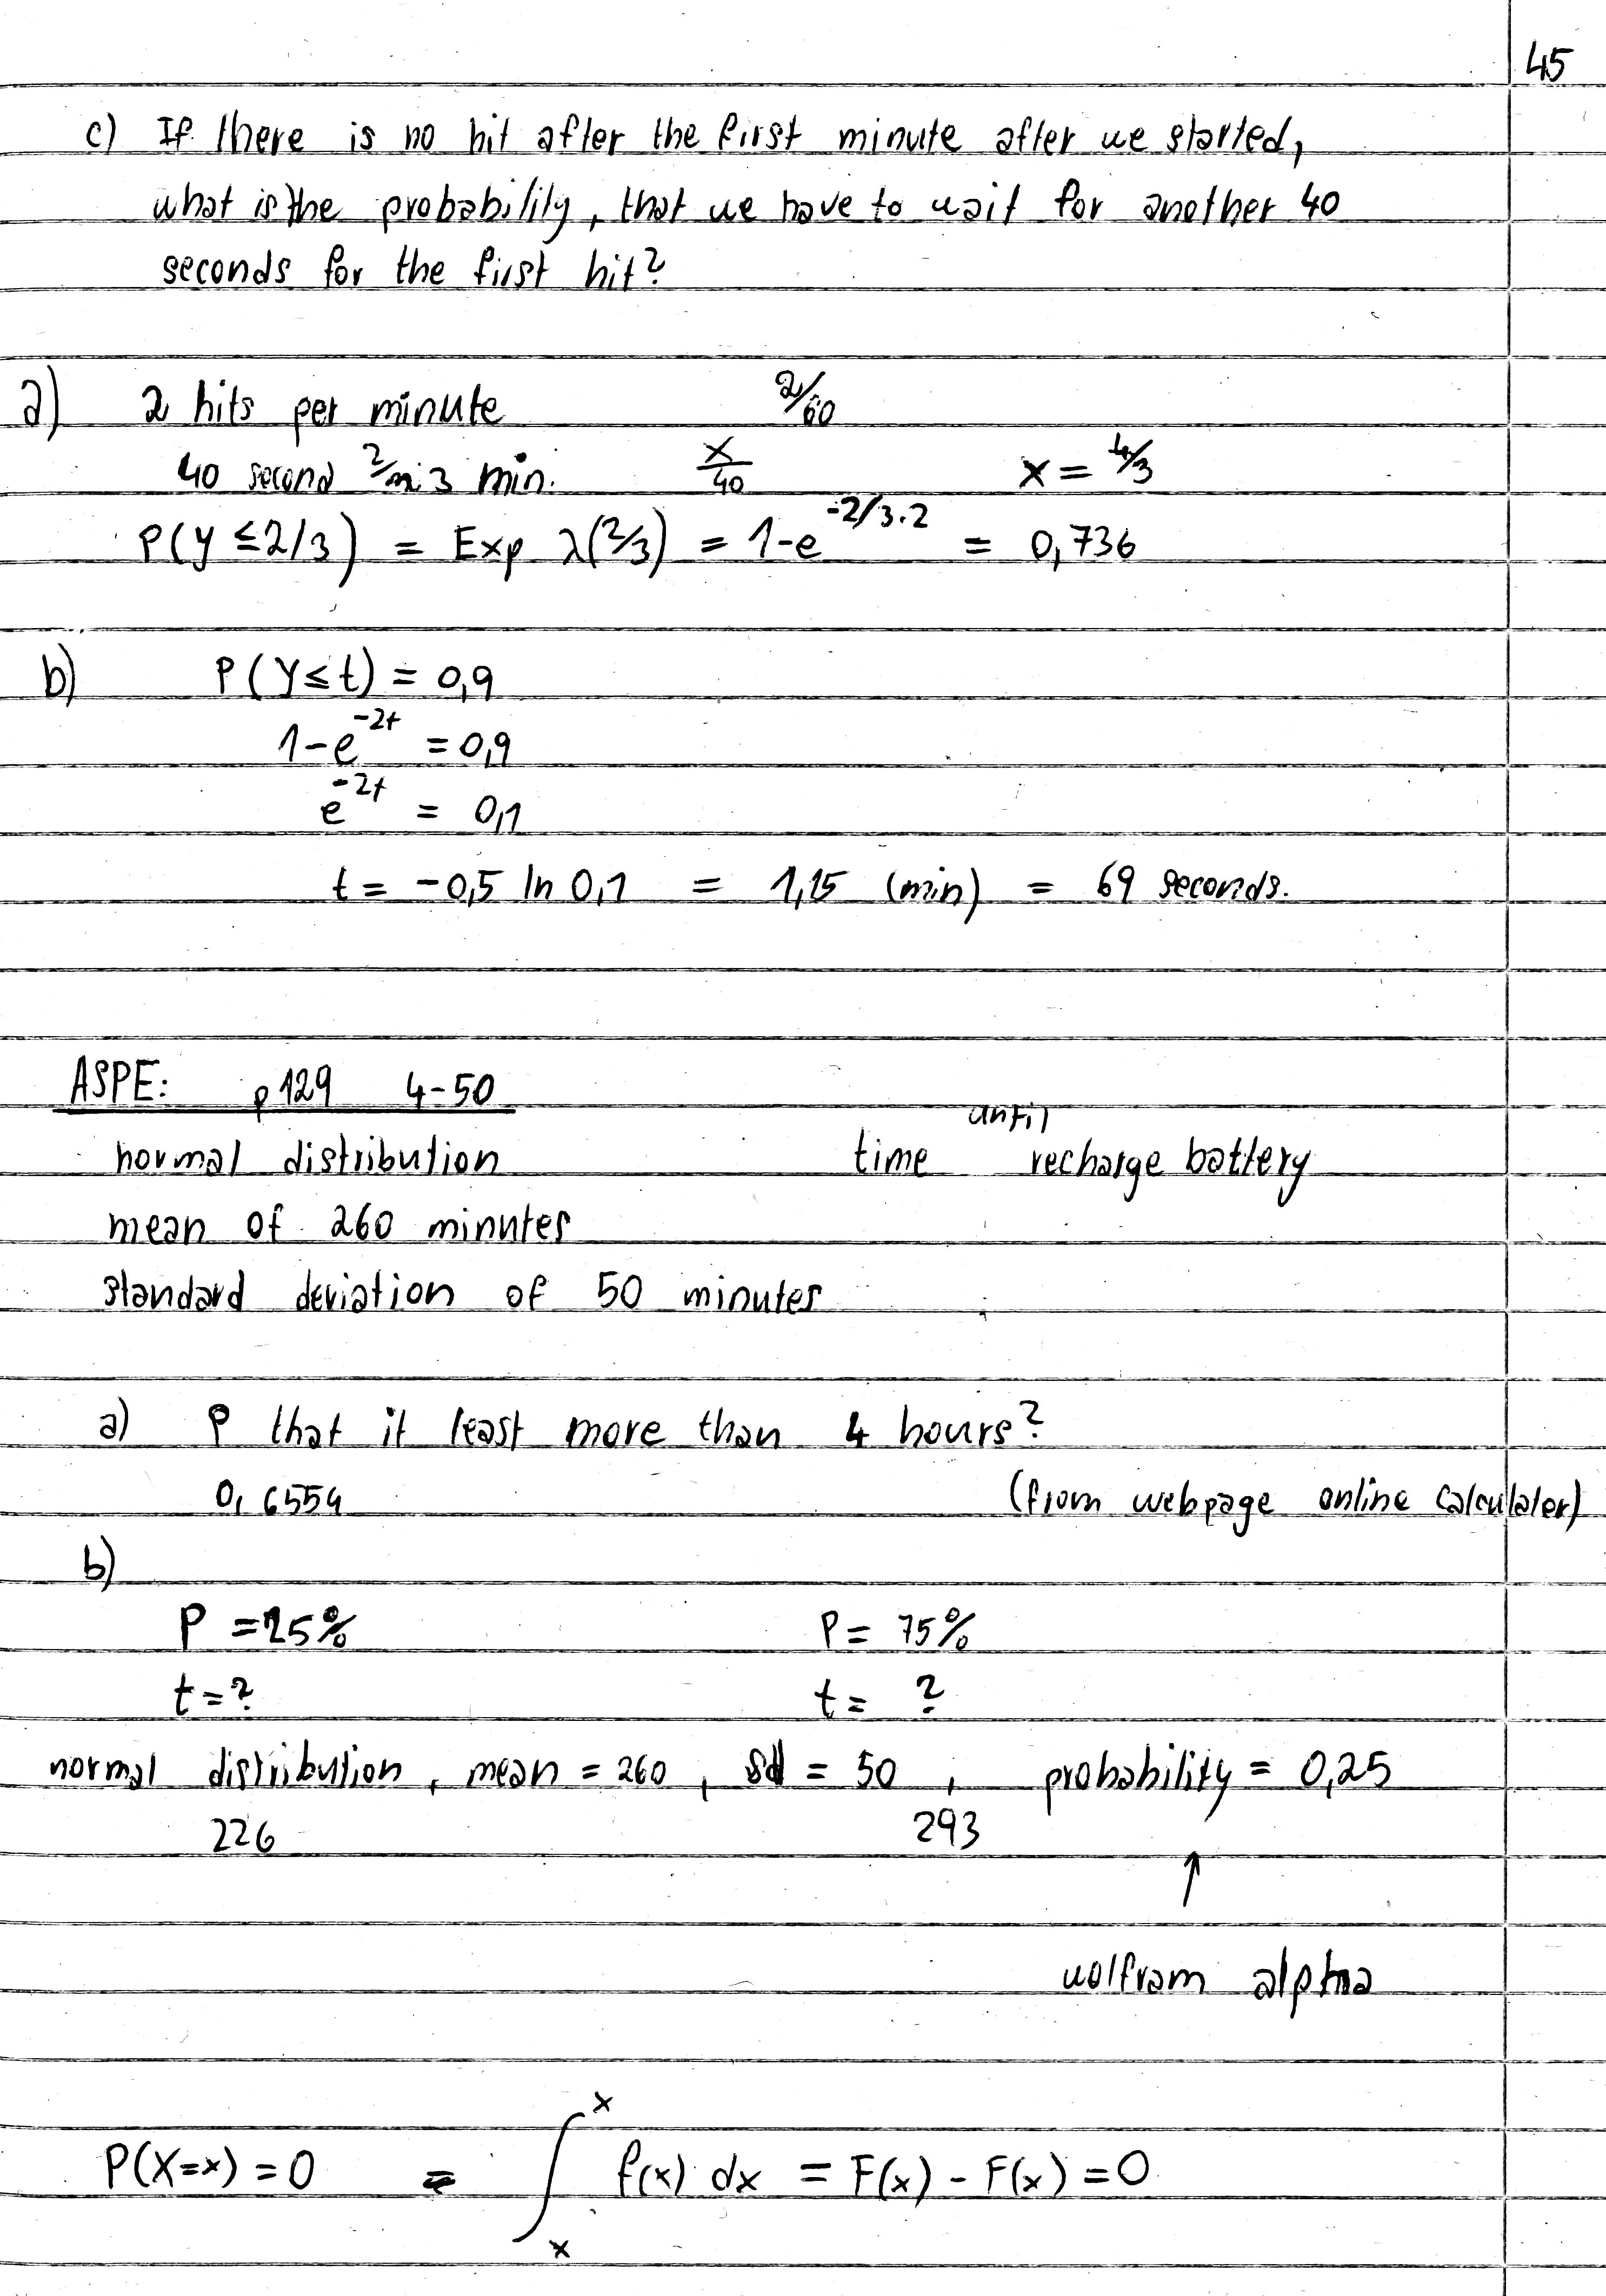 45
c) If there is no hit after the first minute after we started,
what is the probability, that we have to wait for another 40
seconds for the first hit?
a) 2 hits per minute 2/60
40 second 2/3 min. x/40 x = 4/3
P(Y ≤ 2/3) = Exp λ(2/3) = 1-e^-2/3·2 = 0,736
b) P(Y ≤ t) = 0,9
1-e^-2t = 0,9
e^-2t = 0,1
t = -0,5 ln 0,1 = 1,15 (min) = 69 seconds.
ASPE: p 129 4-50
normal distribution time until recharge battery
mean of 260 minutes
standard deviation of 50 minutes
a) P that it least more than 4 hours?
0,6554 (from webpage online calculater)
b)
P = 25% P = 75%
t = ? t = ?
normal distribution, mean = 260, sd = 50, probability = 0,25
226 293
↑
wolfram alpha
P(X=x) = 0 = ∫_x^x f(x) dx = F(x) - F(x) = 0